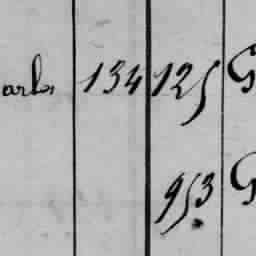 arls 134 125 G
953 G